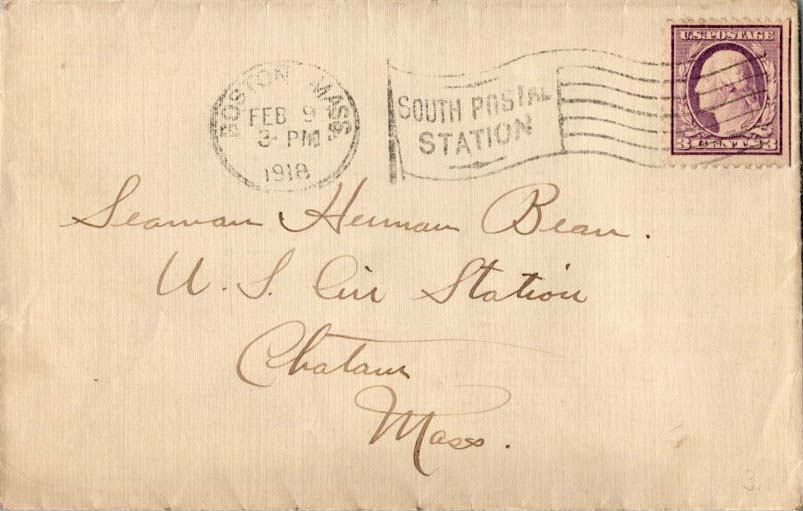 BOSTON MASS.
FEB 9
3-PM
1918
SOUTH POSTAL
STATION
U.S. POSTAGE
3 CENTS 3
Seaman Herman Bean.
U. S. Air Station
Chatam
Mass.